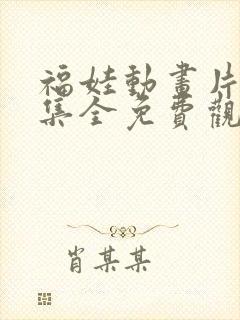 福娃動畫片
集全免費觀
肖某某